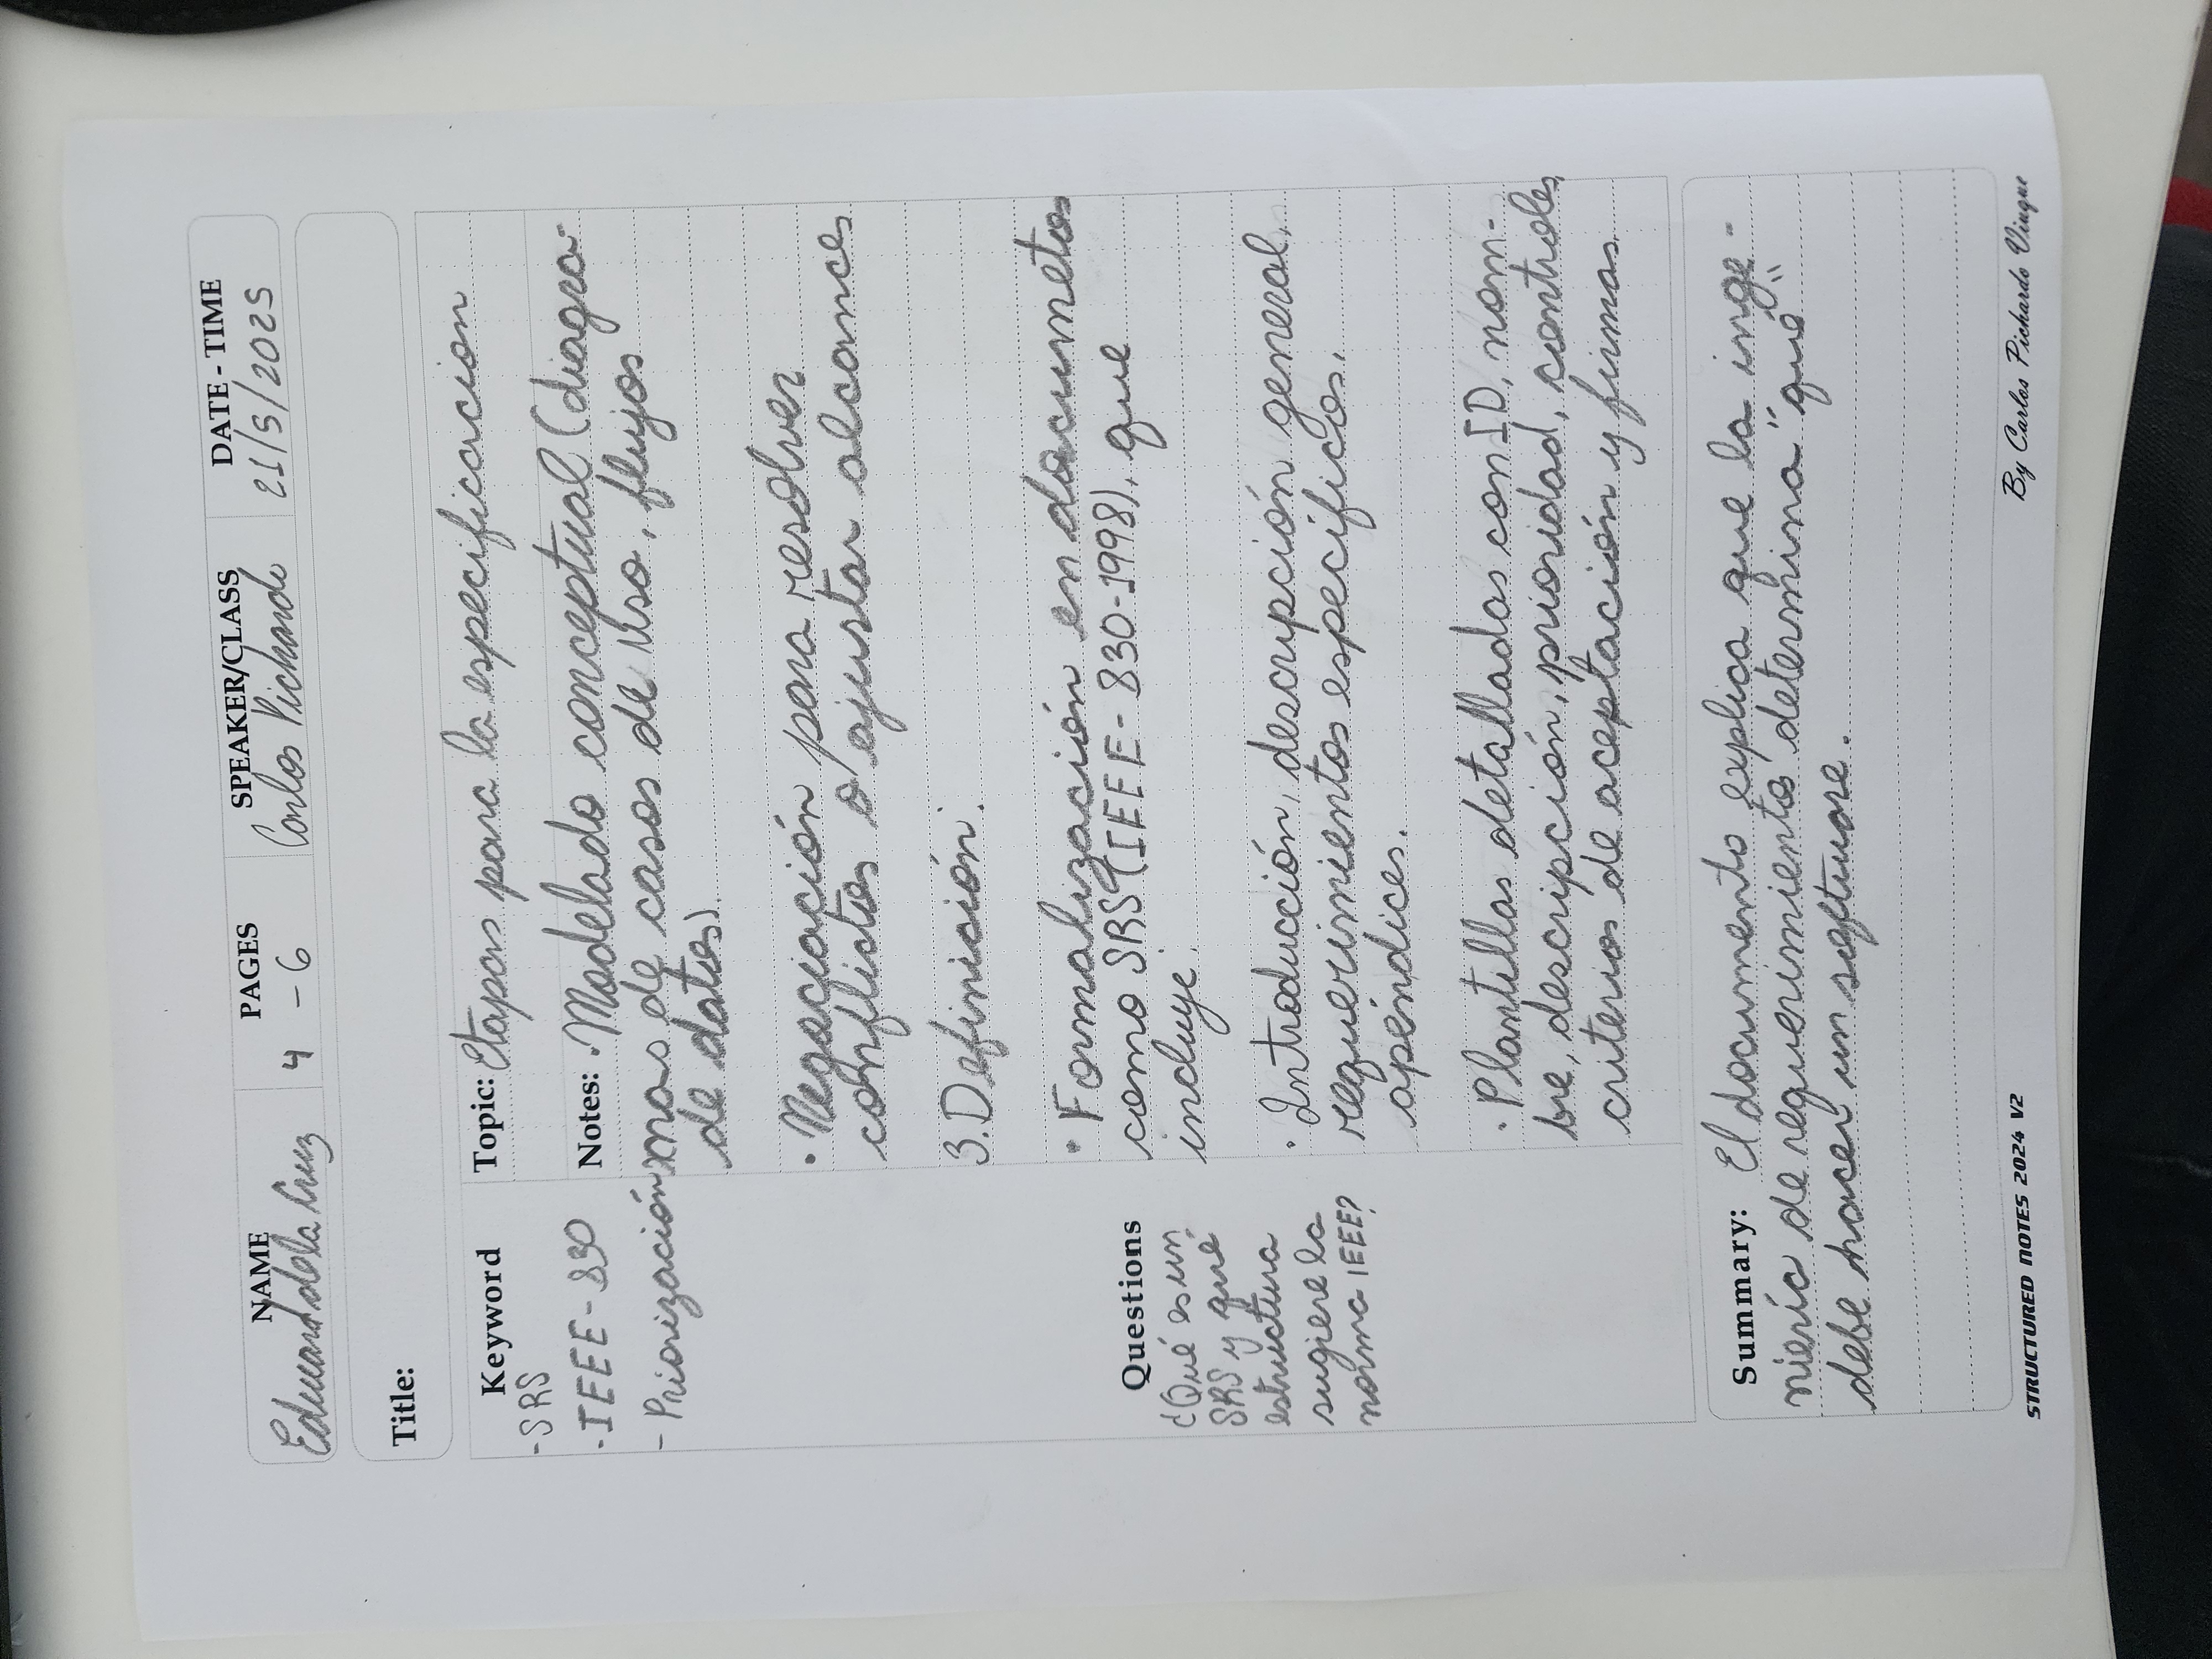 NAME
PAGES
SPEAKER/CLASS
DATE - TIME
Eduard dela Cruz
4 - 6
Carlos Pichardo
21/5/2025
Title:
Keyword
-SRS
-IEEE-830
- Priorización
Questions
¿Qué es un
SRS y qué
estructura
sugiere la
norma IEEE?
Topic: Etapas para la especificacion
Notes: ·Modelado conceptual (diagra-
mas de casos de uso, flujos
de datos).
·Negociación para resolver
conflictos o ajustar alcances
3.Definición:
·Formalización en documetos
como SRS (IEEE-830-1998), que
incluye:
·Introducción, descripción general,
requerimientos especificos,
apéndices.
·Plantillas detalladas con ID, nom-
bre, descripción, prioridad, controles,
criterios de aceptación y firmas.
Summary: El documento explica que la inge-
niería de requerimientos determina "qué"
debe hacer un software.
STRUCTURED NOTES 2024 V2
By Carlos Pichardo Viuque